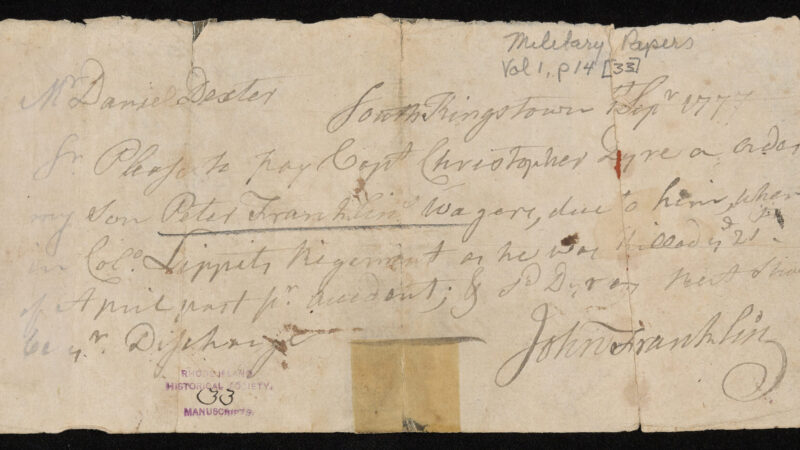 Military Papers
Vol 1, p 14 [33]
Mr Daniel Dexter
South Kingstown Sepr 1777
Sr Please to pay Capt Christopher Dyre or order
my Son Peter Franklins Wagers, due to him, when
in Colo. Lippits Regement as he was killed ye 21
of April past pr accedent; & sd Dyres Recet Shall
be yr Discharge
John Franklin
RHODE ISLAND
HISTORICAL SOCIETY.
33
MANUSCRIPTS.